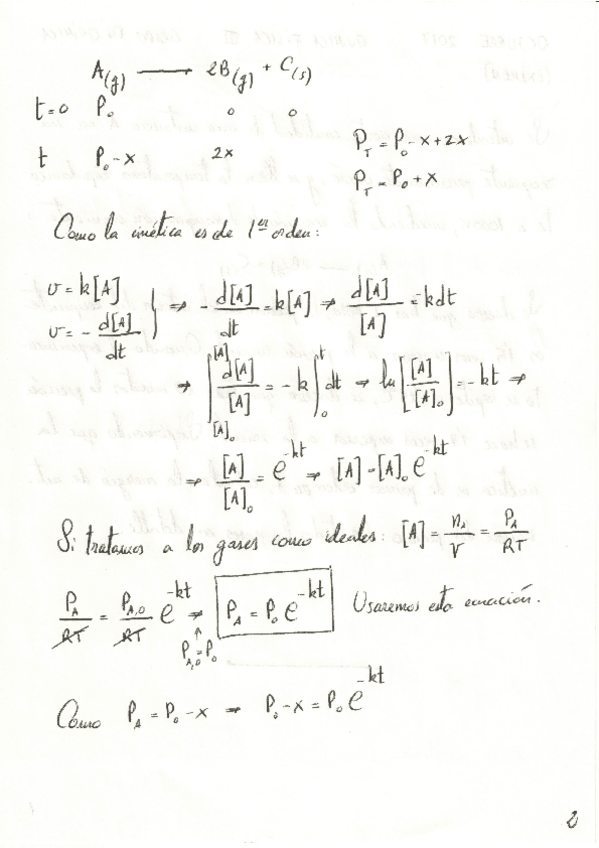 A(g) ⟶ 2B(g) + C(s)
t=0 P₀ 0 0
t P₀-x 2x P_T = P₀-x+2x
P_T = P₀+x
Como la cinética es de 1er orden:
v = k[A]
v = - d[A]/dt | ⇒ - d[A]/dt = k[A] ⇒ d[A]/[A] = -kdt
⇒ ∫_{[A]₀}^{[A]} d[A]/[A] = -k ∫_0^t dt ⇒ ln[[A]/[A]₀] = -kt ⇒
⇒ [A]/[A]₀ = e^{-kt} ⇒ [A] = [A]₀ e^{-kt}
Si tratamos a los gases como ideales: [A] = n_A/V = P_A/RT
P_A/RT = P_{A,0}/RT e^{-kt} ⇒ P_A = P₀ e^{-kt} Usaremos esta ecuación.
↑
P_{A,0} = P₀
Como P_A = P₀-x ⇒ P₀-x = P₀ e^{-kt}
2